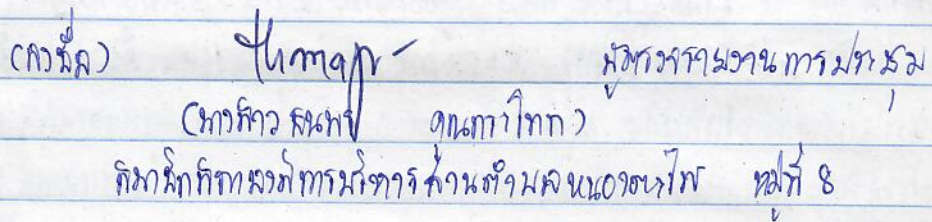 (ลงชื่อ) ผู้ตรวจรายงานการประชุม
(นางสาว
สมาชิกสภาองค์การบริหารส่วนตำบลหนองตะไก้ หมู่ที่ 8